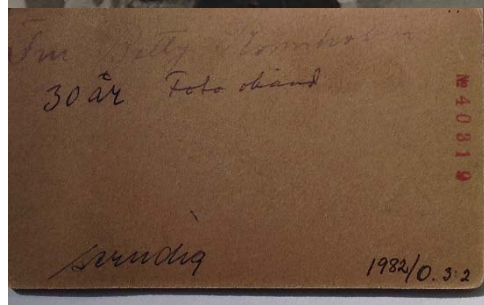 Fru Betty
30 år Foto okänd
№ 40819
1982/0. 3:2